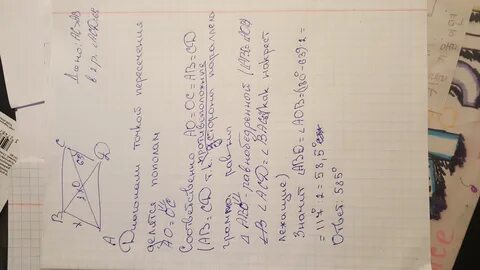 Дано: AC>AB
в 2 р. ∠ACD=63
B
C
63°
O
A
D
Диагонали точкой пересечения
делятся пополам
AO=OC
Соответственно AO=OC=AB=CD
(AB=CD т.к. противоположные
стороны параллело
грамма равны
равнобедренный
∠ACD=∠BAC как накрест
лежащие)
Значит ∠ABD=∠AOB=(180°-63°):2=
=117:2=58,5°
Ответ: 58,5°